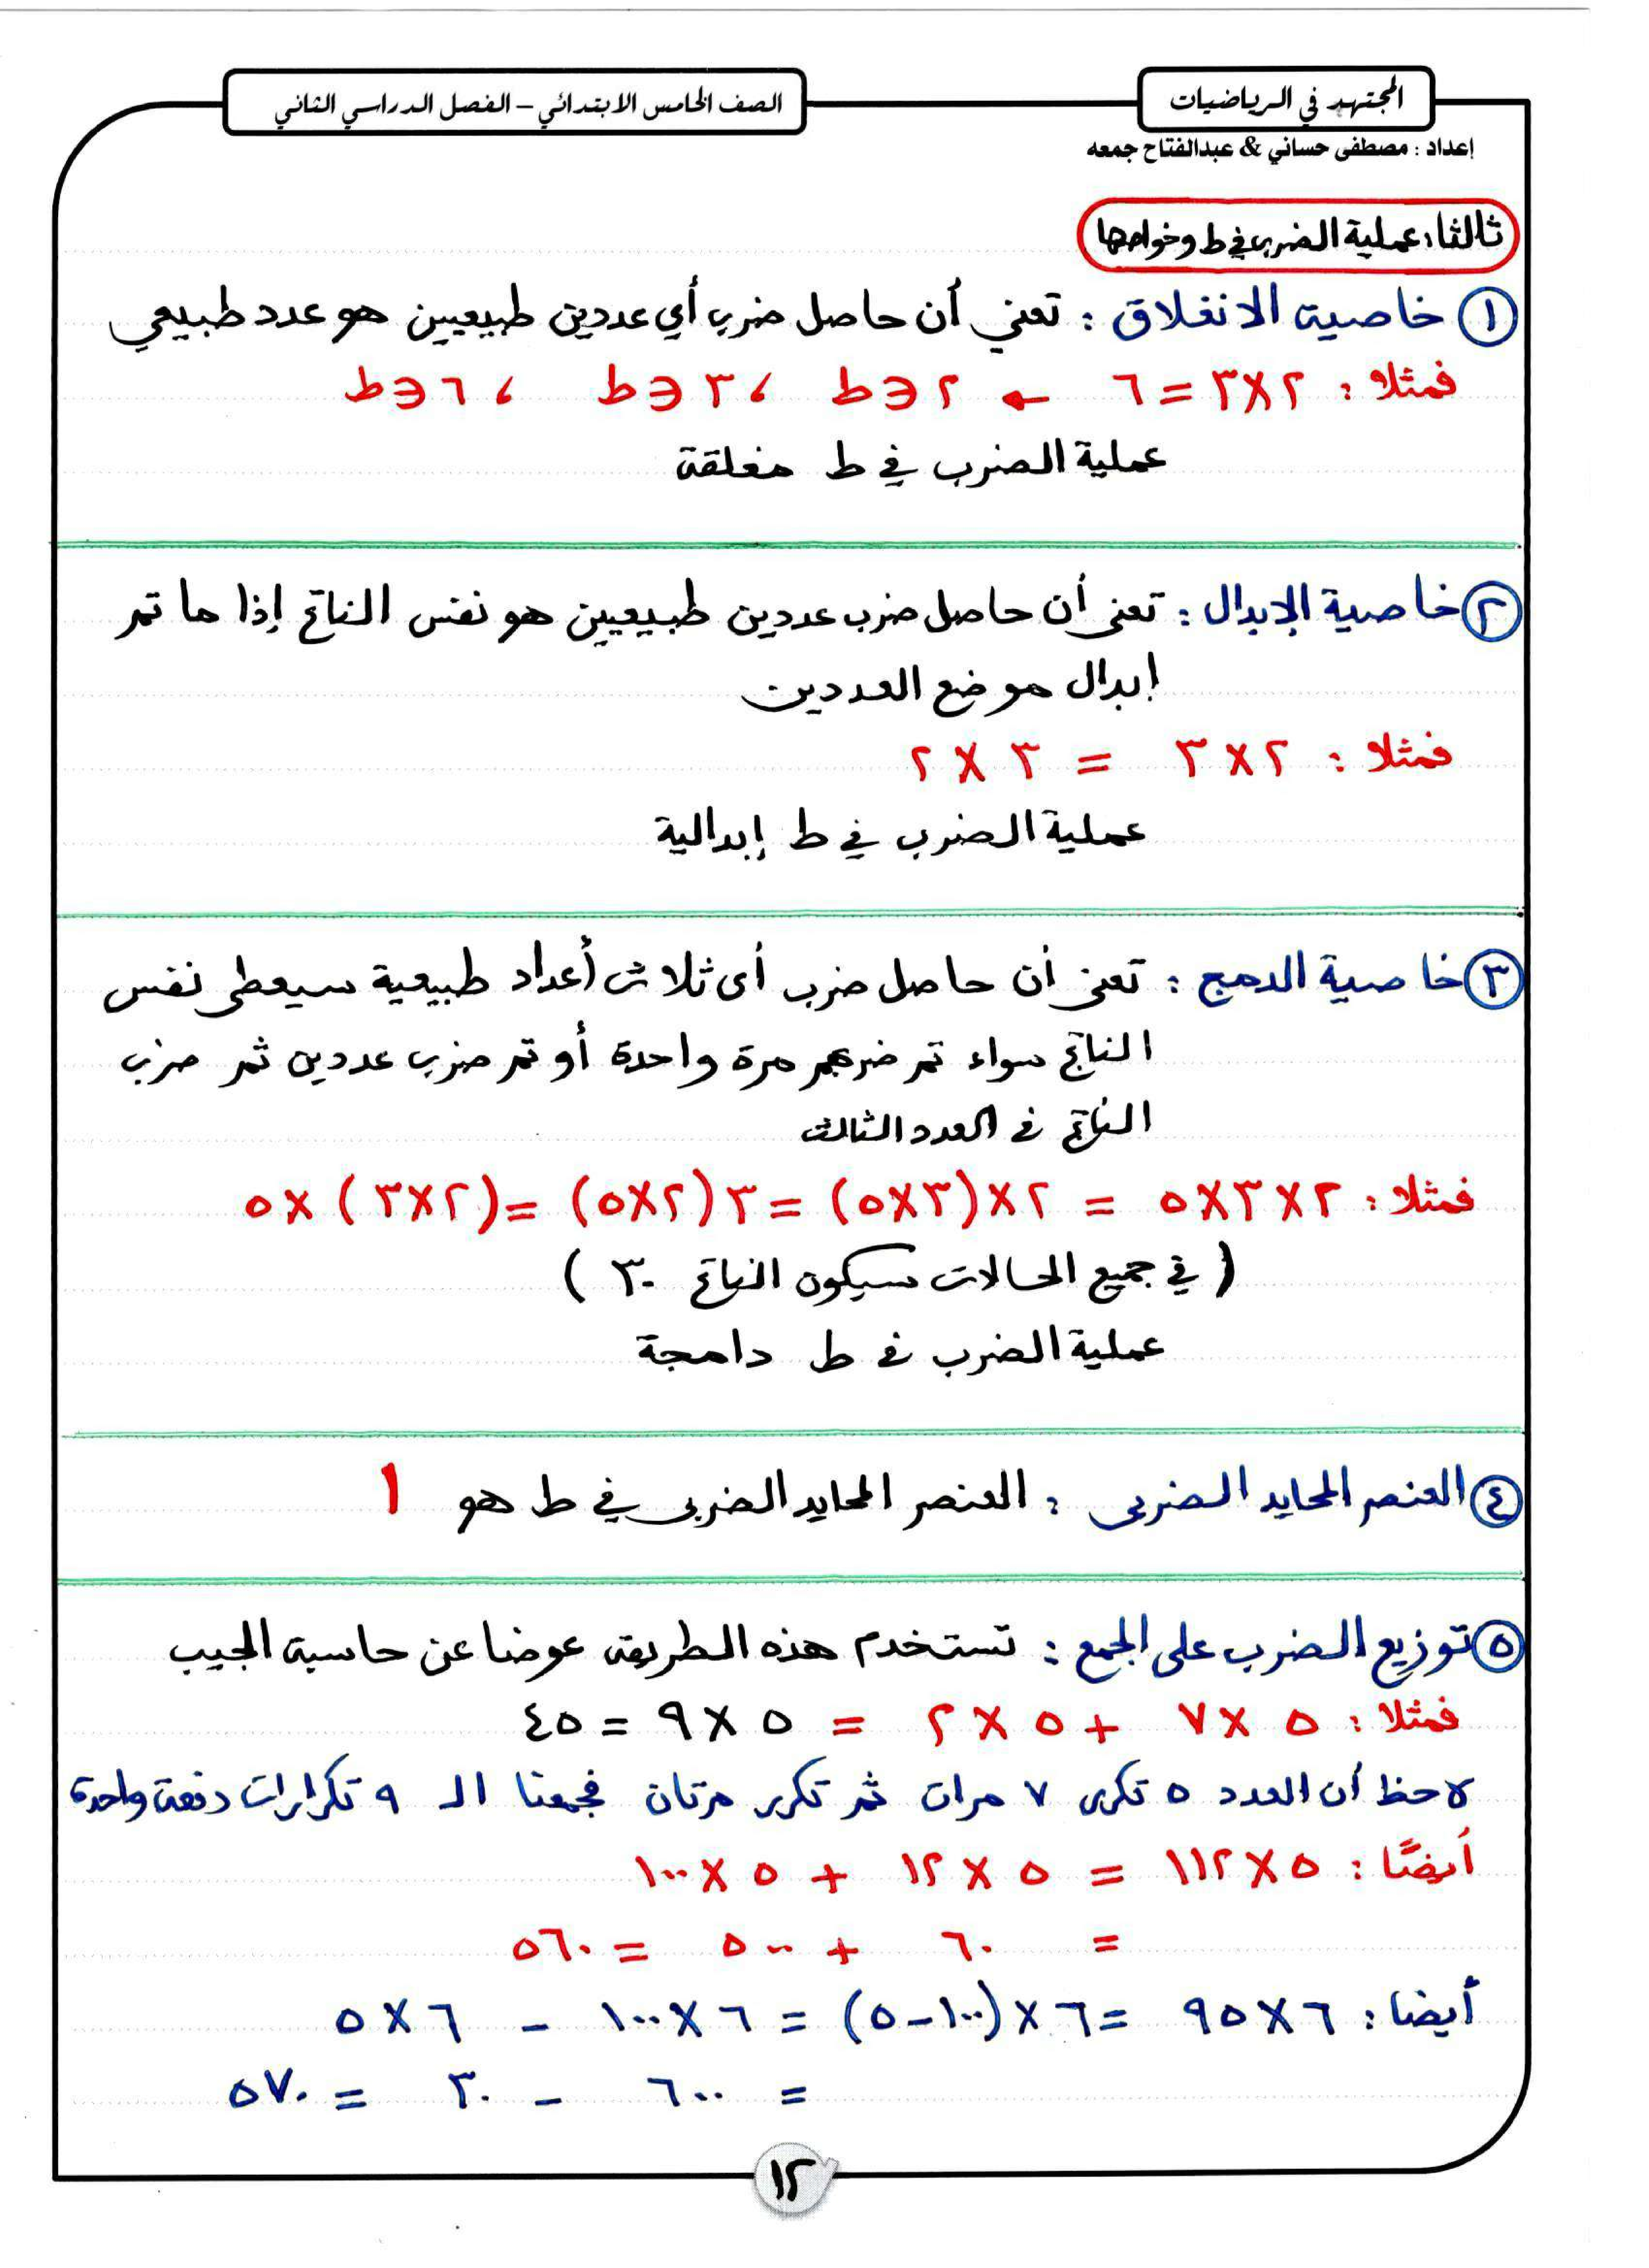 المجتهد في الرياضيات
الصف الخامس الابتدائي – الفصل الدراسي الثاني
إعداد : مصطفى حساني & عبدالفتاح جمعه
ثالثا: عملية الضرب في ط وخواصها
١ خاصية الانغلاق : تعني أن حاصل ضرب أي عددين طبيعيين هو عدد طبيعي
فمثلا : ٢ × ٣ = ٦ ← ٢ ∈ ط ، ٣ ∈ ط ، ٦ ∈ ط
عملية الضرب في ط مغلقة
٢ خاصية الإبدال : تعنى أن حاصل ضرب عددين طبيعيين هو نفس الناتج إذا ما تم
إبدال موضع العددين
فمثلا : ٢ × ٣ = ٣ × ٢
عملية الضرب في ط إبدالية
٣ خاصية الدمج : تعنى أن حاصل ضرب أى ثلاث أعداد طبيعية سيعطى نفس
الناتج سواء تم ضربهم مرة واحدة أو تم ضرب عددين ثم ضرب
الناتج فى العدد الثالث
فمثلا : ٢ × ٣ × ٥ = ٢ × (٣ × ٥) = ٣ (٢ × ٥) = (٢ × ٣) × ٥
( في جميع الحالات سيكون الناتج ٣٠ )
عملية الضرب فى ط دامجة
٤ العنصر المحايد الضربى : العنصر المحايد الضربى في ط هو ١
٥ توزيع الضرب على الجمع : تستخدم هذه الطريقة عوضا عن حاسبة الجيب
فمثلا : ٥ × ٧ + ٥ × ٢ = ٥ × ٩ = ٤٥
لاحظ أن العدد ٥ تكرر ٧ مرات ثم تكرر مرتان فجمعنا الـ ٩ تكرارات دفعة واحدة
أيضًا : ٥ × ١١٢ = ٥ × ١٢ + ٥ × ١٠٠
= ٦٠ + ٥٠٠ = ٥٦٠
أيضا : ٦ × ٩٥ = ٦ × (١٠٠ - ٥) = ٦ × ١٠٠ - ٦ × ٥
= ٦٠٠ - ٣٠ = ٥٧٠
١٢